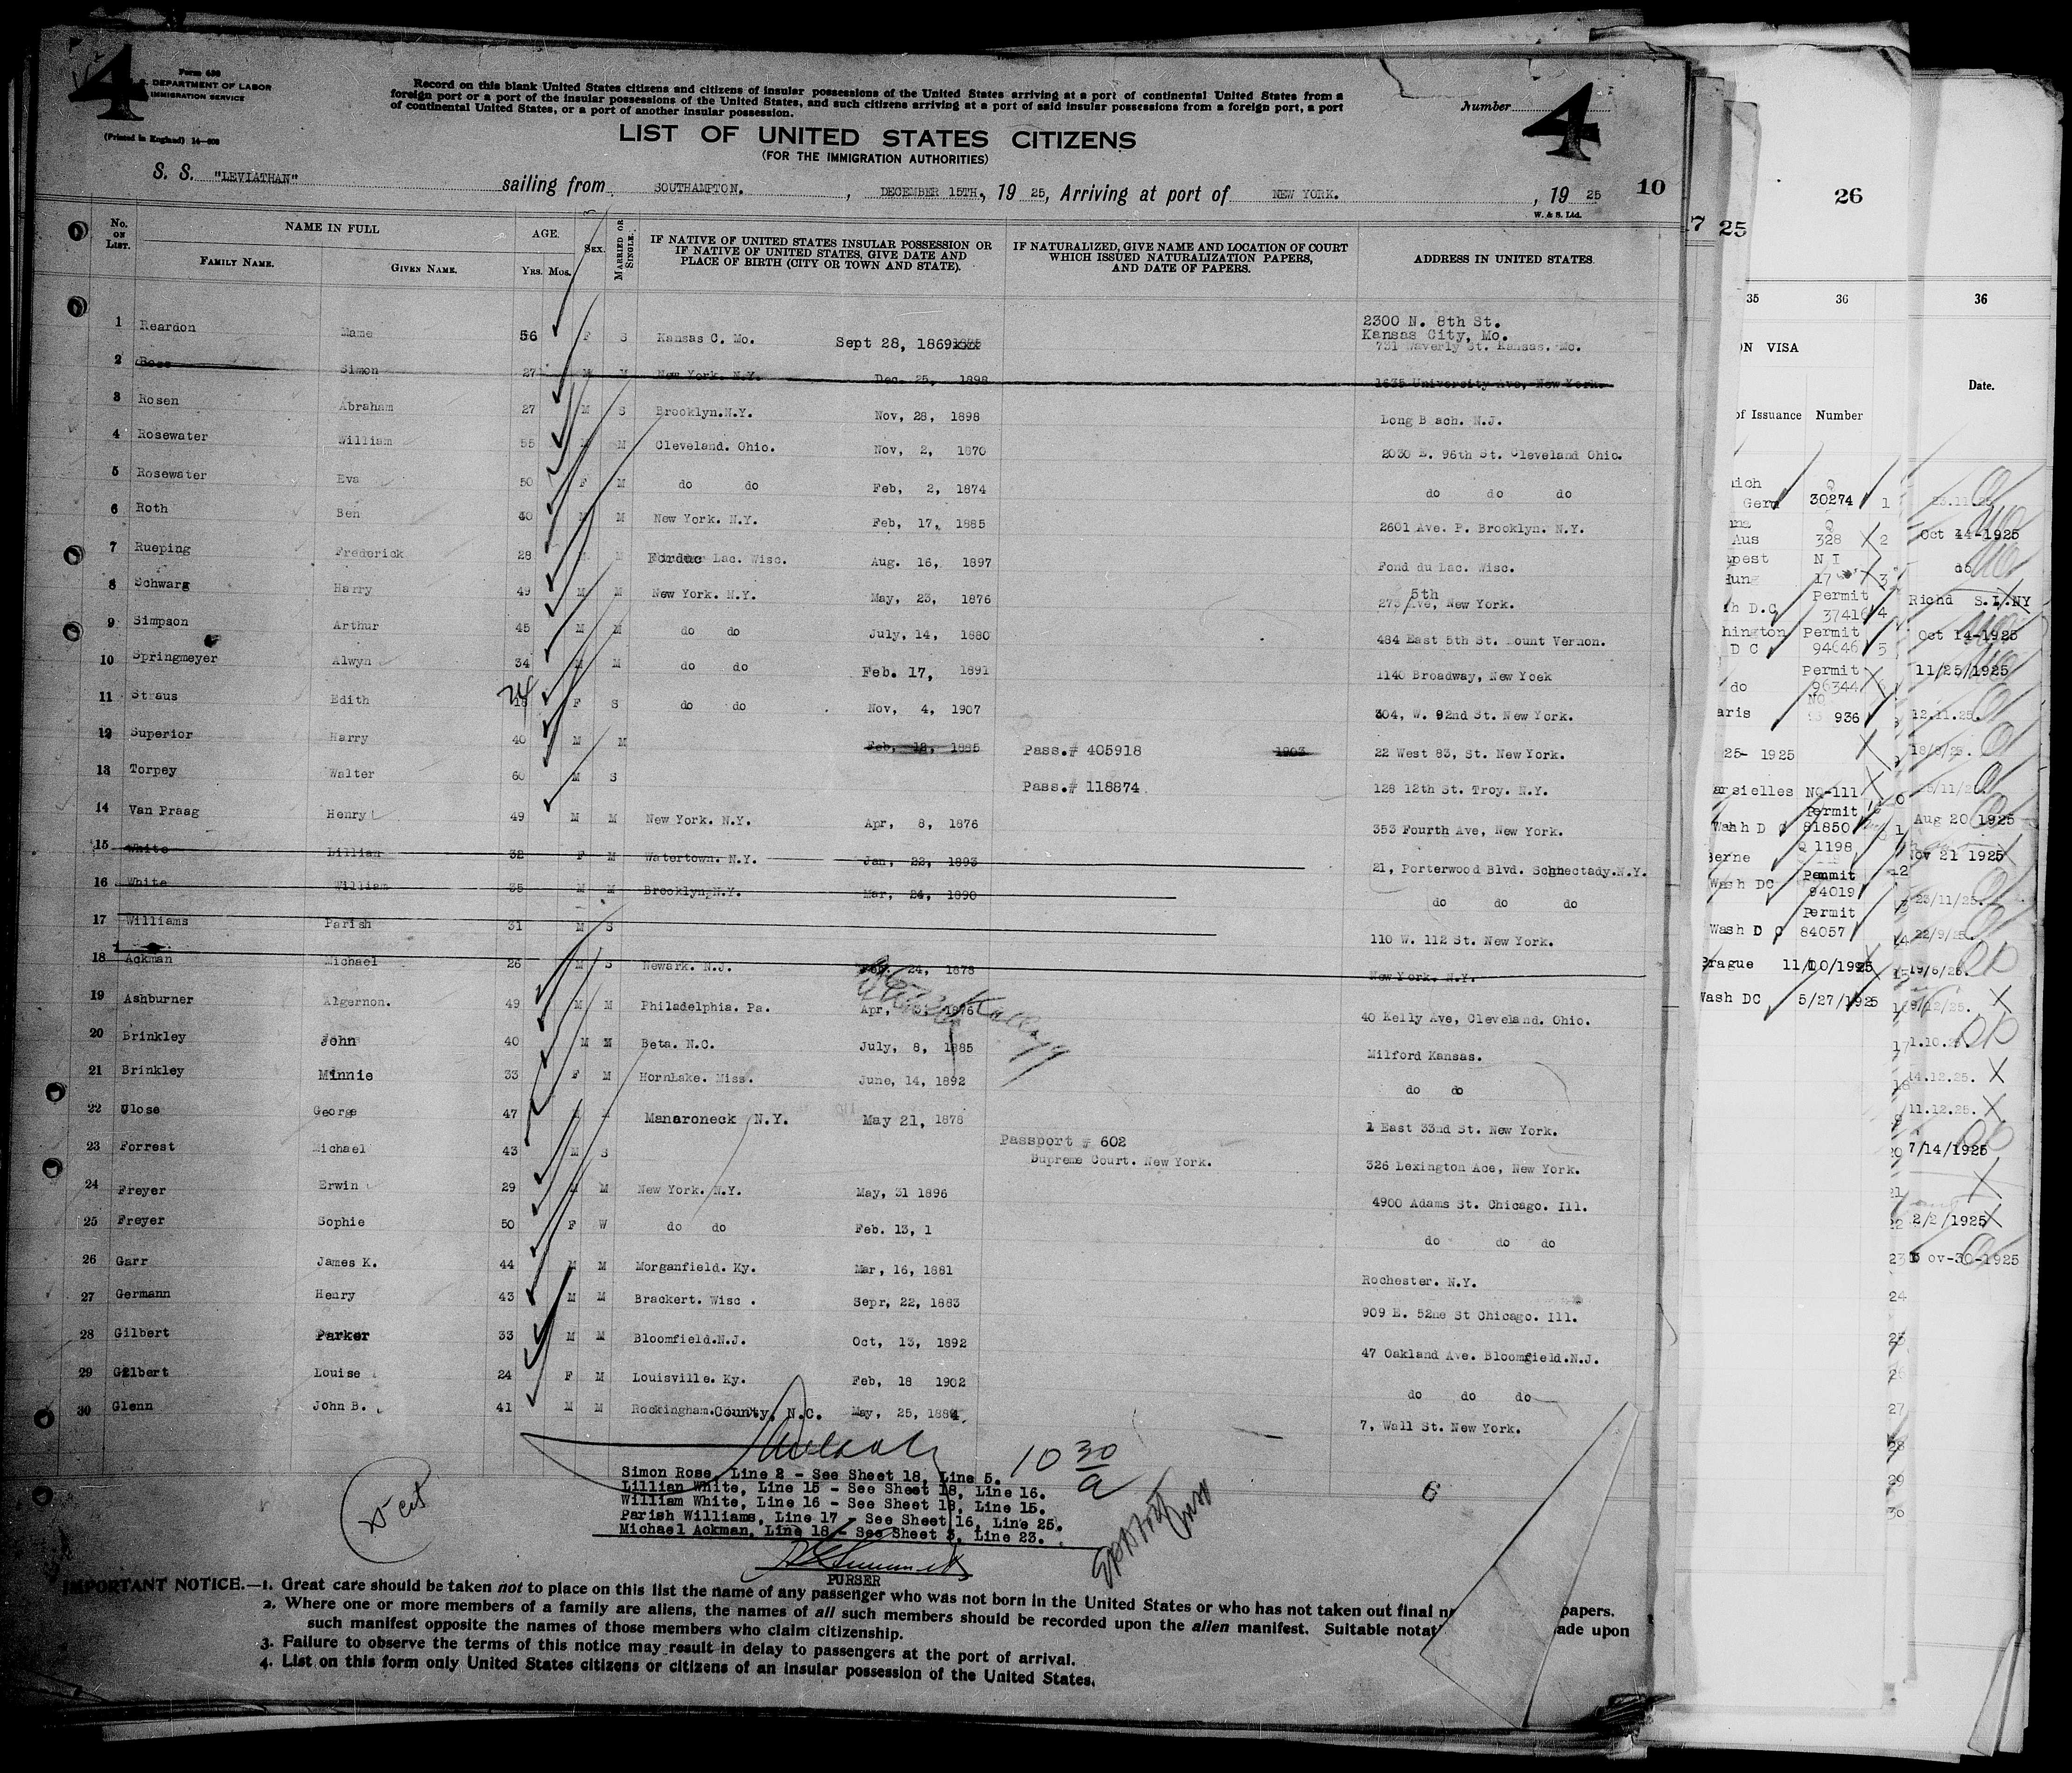 4
Form 630
U. S. DEPARTMENT OF LABOR
IMMIGRATION SERVICE
(Printed in England) 14-606
Record on this blank United States citizens and citizens of insular possessions of the United States arriving at a port of continental United States from a
foreign port or a port of the insular possessions of the United States, and such citizens arriving at a port of said insular possessions from a foreign port, a port
of continental United States, or a port of another insular possession.
Number 4
LIST OF UNITED STATES CITIZENS
(FOR THE IMMIGRATION AUTHORITIES)
S. S. "LEVIATHAN" sailing from SOUTHAMPTON., DECEMBER 15TH., 1925, Arriving at port of NEW YORK., 1925 10
W. & S. Ltd.
No. ON LIST. NAME IN FULL AGE. SEX. MARRIED OR SINGLE. IF NATIVE OF UNITED STATES INSULAR POSSESSION OR IF NATIVE OF UNITED STATES, GIVE DATE AND PLACE OF BIRTH (CITY OR TOWN AND STATE). IF NATURALIZED, GIVE NAME AND LOCATION OF COURT WHICH ISSUED NATURALIZATION PAPERS, AND DATE OF PAPERS. ADDRESS IN UNITED STATES.
FAMILY NAME. GIVEN NAME. YRS. MOS.
1 Reardon Mame 56 F S Kansas C. Mo. Sept 28, 1869 2300 N. 8th St. Kansas City, Mo.
731 Waverly St. Kansas. Mo.
2 Simon 27 M M New York. N.Y. Dec. 25, 1898 1635 University Ave, New York.
3 Rosen Abraham 27 M S Brooklyn.N.Y. Nov, 28, 1898 Long B ach. N.J.
4 Rosewater William 55 M M Cleveland. Ohio. Nov, 2, 1870 2030 E. 96th St. Cleveland Ohio.
5 Rosewater Eva 50 F M do do Feb, 2, 1874 do do do
6 Roth Ben 40 M M New York. N.Y. Feb, 17, 1885 2601 Ave. P. Brooklyn. N.Y.
7 Rueping Frederick 28 M M Lac. Wisc. Aug. 16, 1897 Fond du Lac. Wisc.
8 Schwarg Harry 49 M M New York. N.Y. May, 23, 1876 273 5th Ave, New York.
9 Simpson Arthur 45 M M do do July, 14, 1880 484 East 5th St. Mount Vernon.
10 Springmeyer Alwyn 34 M M do do Feb. 17, 1891 1140 Broadway, New Yoek
11 Straus Edith 18 F S do do Nov, 4, 1907 304, W. 92nd St. New York.
12 Superior Harry 40 M M Feb, 18, 1885 Pass.# 405918 1903 22 West 83, St. New York.
13 Torpey Walter 60 M S Pass.# 118874 128 12th St. Troy. N.Y.
14 Van Praag Henry 49 M M New York. N.Y. Apr, 8, 1876 353 Fourth Ave, New York.
15 White Lillian 32 F M Watertown. N.Y. Jan, 22, 1893 21, Porterwood Blvd. Schnectady.N.Y.
16 White William 35 M M Brooklyn,N.Y. Mar, 24, 1890 do do do
17 Williams Parish 31 M S 110 W. 112 St. New York.
18 Ackman Michael 26 M S Newark. N.J. 24, 1878 New York. N.Y.
19 Ashburner Algernon. 49 M M Philadelphia. Pa. Apr, 1876 40 Kelly Ave, Cleveland. Ohio.
20 Brinkley John 40 M M Beta. N.C. July, 8, 1885 Milford Kansas.
21 Brinkley Minnie 33 F M HornLake. Miss. June, 14, 1892 do do
22 Close George 47 Manaroneck N.Y. May 21, 1878 1 East 33nd St. New York.
23 Forrest Michael 43 M S Passport # 602 Supreme Court. New York. 326 Lexington Ace, New York.
24 Freyer Erwin 29 M M New York. N.Y. May, 31 1896 4900 Adams St. Chicago. Ill.
25 Freyer Sophie 50 F W do do Feb. 13, 1 do do do
26 Garr James K. 44 M M Morganfield. Ky. Mar, 16, 1881 Rochester. N.Y.
27 Germann Henry 43 M M Brackert. Wisc . Sepr, 22, 1883 909 E. 52ne St Chicago. Ill.
28 Gilbert Parker 33 M M Bloomfield.N.J. Oct, 13, 1892 47 Oakland Ave. Bloomfield.N.J.
29 Gilbert Louise 24 F M Louisville. Ky. Feb, 18 1902 do do do
30 Glenn John B. 41 M M Rockingham. County, N.C. May, 25, 1884 7, Wall St. New York.
10 30 a
6
Simon Rose, Line 2 - See Sheet 18, Line 5.
Lillian White, Line 15 - See Sheet 18, Line 16.
William White, Line 16 - See Sheet 18, Line 15.
Parish Williams, Line 17 - See Sheet 16, Line 25.
Michael Ackman, Line 18 - See Sheet 3, Line 23.
PURSER
IMPORTANT NOTICE.—1. Great care should be taken not to place on this list the name of any passenger who was not born in the United States or who has not taken out final papers.
2. Where one or more members of a family are aliens, the names of all such members should be recorded upon the alien manifest. Suitable ade upon
such manifest opposite the names of those members who claim citizenship.
3. Failure to observe the terms of this notice may result in delay to passengers at the port of arrival.
4. List on this form only United States citizens or citizens of an insular possession of the United States.
7 25 26
35 36 36
ON VISA
of Issuance Number Date.
Germ 30274 1 23.11.25
Aus 328 2 Oct 14-1925
pest N I
Hung 17 3 do
h D.C Permit 37416 4 Richd S.I.NY
hington D C Permit 94646 5 Oct 14-1925
do Permit 96344 11/25/1925
aris No 936 12.11.25.
25- 1925 18/8/25.
arsielles NQ-111
Wash D C Permit 81850 Aug 20 1925
Berne Q 1198 Nov 21 1925
Wash DC Permit 94019 12 23/11/25.
Wash D C Permit 84057 14 22/9/25.
Prague 11/10/1925 15 19/6/25.
Wash DC 5/27/1925 9/12/25.
17 1.10.25
18 14.12.25.
11.12.25.
20 7/14/1925
21
22 2/2/1925
23 ov-30-1925
24
25
26
27
28
29
30